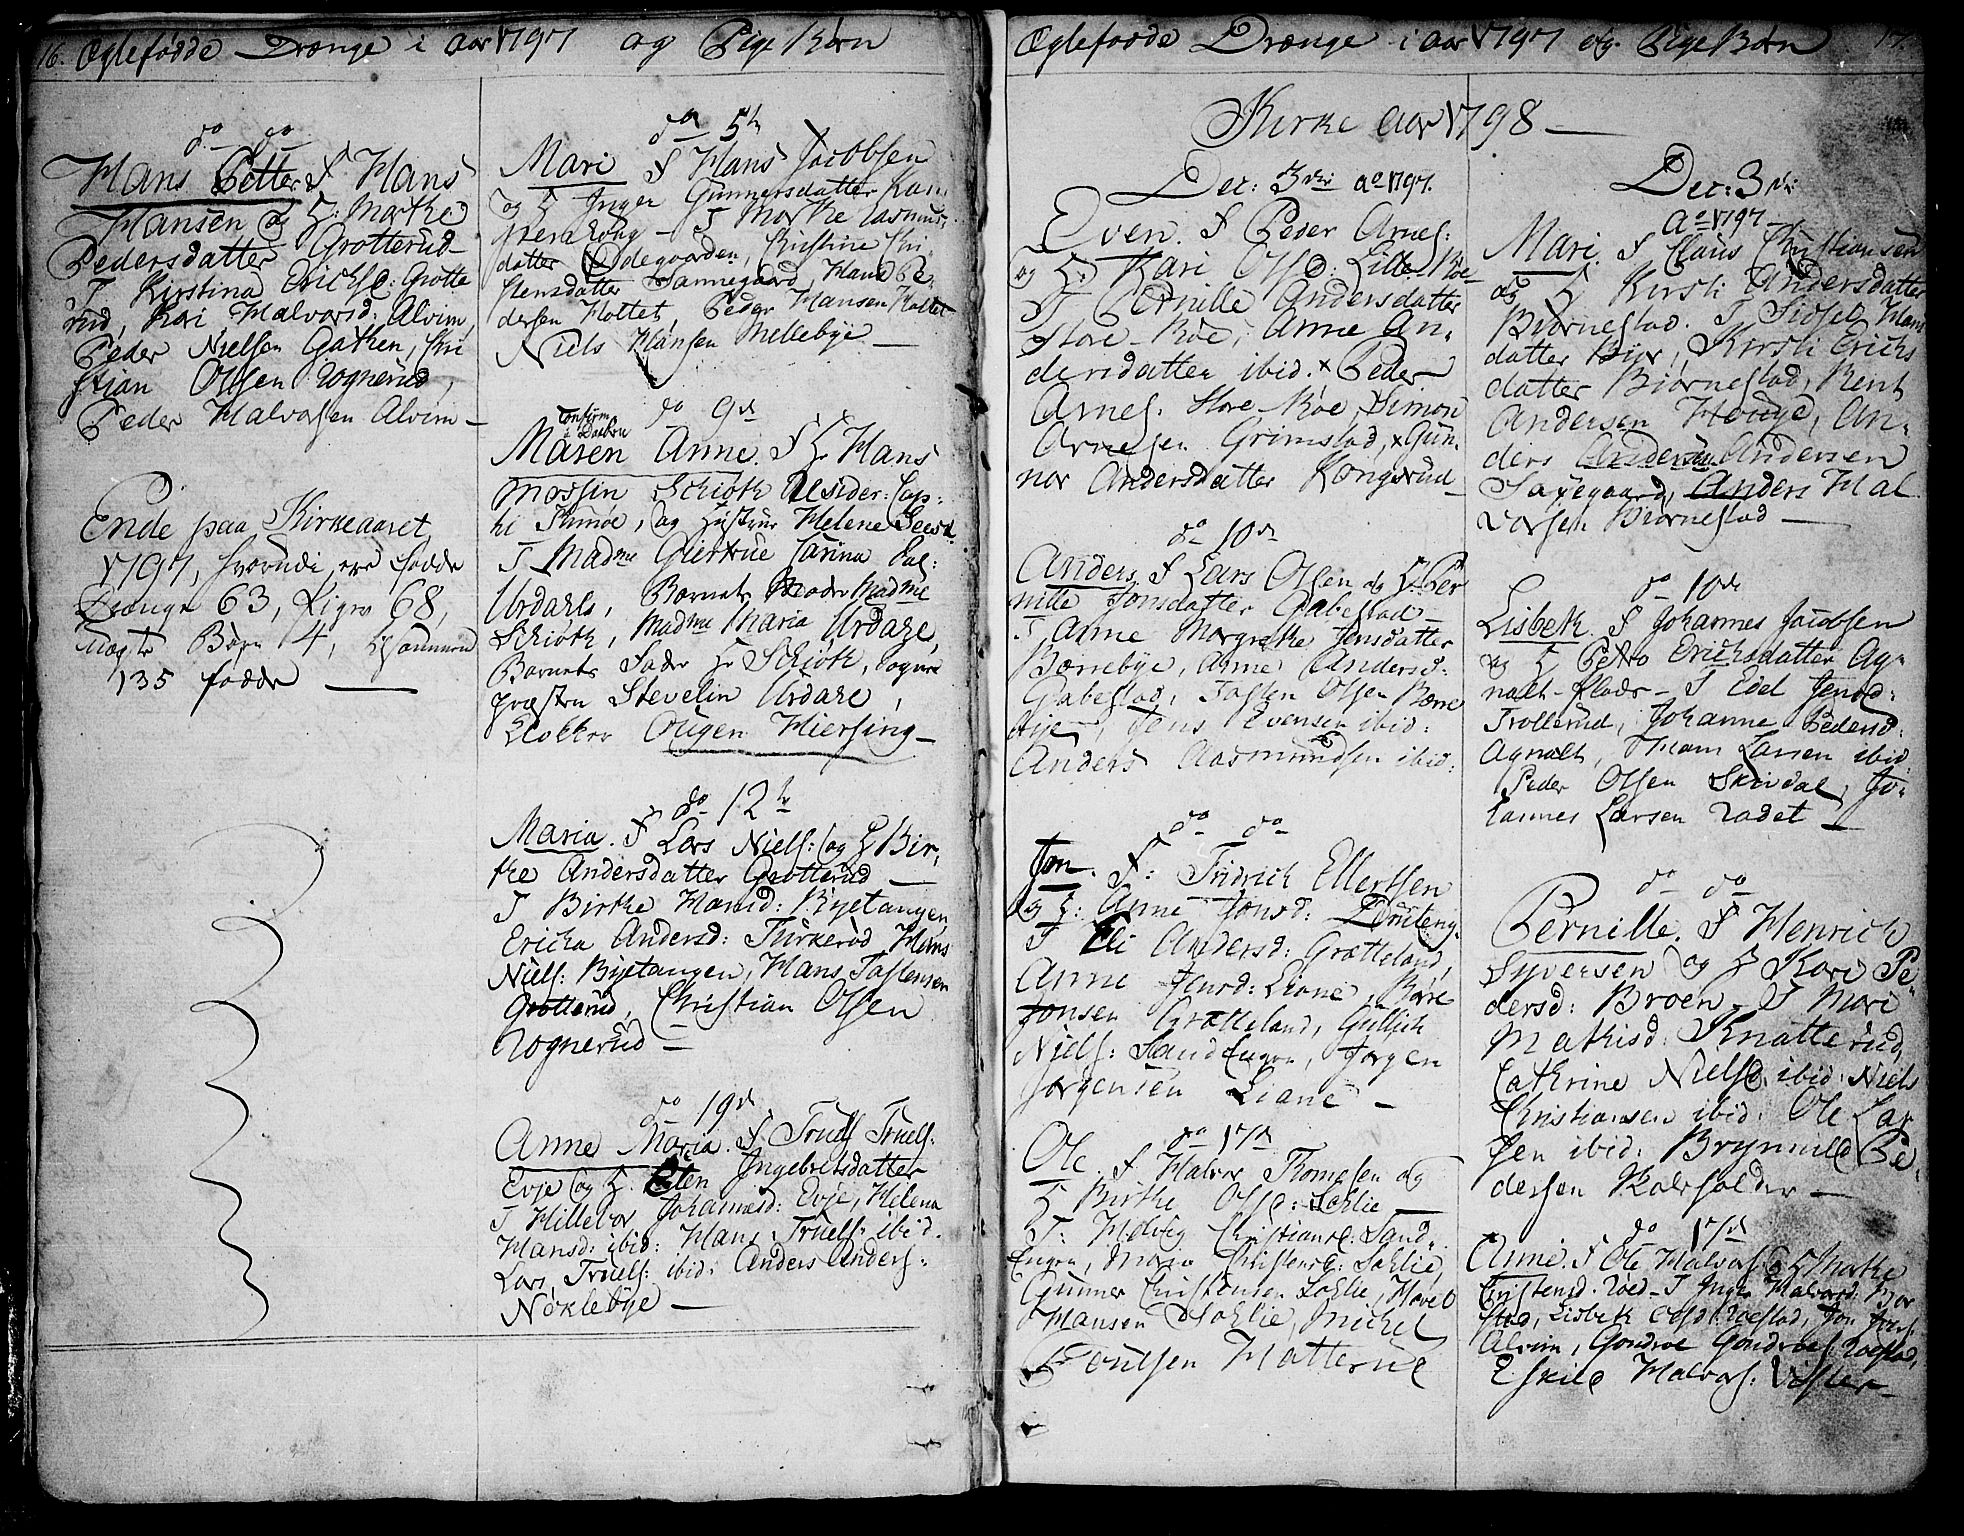 16. Ægtefødde Drænge i Aar 1797 og Pige Børn
do do
Hans Petter F Hans
Hansen og H: Marthe
Pedersdatter Grotterud
T Kirstina Erichsd: Grotte
rud, Kari Halvorsd: Alvim,
Peder Nielsen Gathen, Chri
stian Olsen Rognerud,
Peder Halvorsen Alvim
Ende paa Kirkeaaret
1797, hvorudi ere fødde
Drænge 63, Piger 68,
uægte Børn 4, tilsammen
135 fødde
do 5te
Mari F Hans Jacobsen
og H Inger Gunnersdatter
T Marthe Rasmus
datter Ødegaarden, Christine Chri
stensdatter Sannegaard, Hans Pe
dersen Holtet, Peder Hansen Holtet
Niels Hansen Mellebye
do 9de
Confirm
Maren Anne. F Hr Hans
Schiøth Resider: Cap:
til Thunøe, og Hustrue Helene
T Madme Giertrue Carina
Urdahls, Barnets Moder Madme
Schiøth, Madme Maria Urdahl,
Barnets Fader Hr Schiøth, Sogne
præsten Stevelin Urdahl,
Klokker Ougen Hiersing
do 12te
Maria. F Lars Niels: og H Bir
the Andersdatter Grotterud
T Birthe Hansd: Byetangen,
Ericha Andersd: Turkerød, Hans
Niels: Byetangen, Hans Tostensen
Grotterud, Christian Olsen
Rognerud
do 19de
Anne Maria. F Truels Truels:
Evje og H. Elen Ingebretsdatter
T Hillebor Johannesd: Evje, Helena
Hansd: ibid: Hans Truels: ibid.
Lars Truels: ibid: Anders Anders:
Nøklebye
Ægtefødde Drænge i Aar 1797 og Pige Børn 17.
Kirke Aar 1798
Dec: 3die ao 1797.
Even. F Peder Arnes:
og H: Kari Olsd: Lille-Røe
T Pernille Andersdatter
Store-Røe, Anne An
dersdatter ibid. Peder
Arnes. Store Røe, Simon
Arnesen Grimstad, Gun
nor Andersdatter Kongsrud
do 10de
Anders F Lars Olsen og H. Per
nille Jonsdatter Gabestad
T Anne Margrethe Jensdatter
Børrebye, Anne Andersd:
Gabestad, Tosten Olsen Børre
bye, Jens Evensen ibid:
Anders Aasmundsen ibid:
do do
Jon. F: Fridrich Ellertsen
og H: Anne Jonsd:
T Eli Andersd: Grætteland,
Anne Jensd: Liane, Børre
Jonsen Grætteland, Gullich
Niels: Sand Engen, Jørgen
Jørgensen Liane
do 17de
Ole. F Halvor Thomesen og
H Birthe Olsd: Lahlie
T: Helvig Christiansd: Sand
Engen, Maria Christensd: Lahlie,
Gunner Christensen Lahlie, Havel
Hansen Lahlie, Michel
Poulsen Hatterud
Dec: 3die
ao 1797
Mari. F Claus Christiansen
og H Kirsti Andersdatter
Biørnestad. T Sidsel Hans
datter Bier, Kirsti Erichs
datter Biørnestad, Bent
Andersen Houge, An
ders Andersen Andersen
Saxegaard, Anders Hal
vorsen Biørnestad
do 10de
Lisbeth. F Johannes Jacobsen
og H Petro Erichsdatter Ag
nalt-flade - T Edel Jensd:
Trollerud, Johanne Pedersd:
Agnalt, Thom Larsen ibid
Peder Olsen Skivdal, Jo
hannes Larsen Radet
do do
Pernille. F Henrich
Syversen og H Kari Pe
dersd: Broen - T Mari
Mathisd: Knatterud,
Cathrine Nielsd. ibid: Niels
Christiansen ibid: Ole Lar
sen ibid: Brynnild Pe
dersen Kalsfolden
do 17de
Anne. F Ole Halvors: og H Marthe
Christensd. Røed - T Inger Halvorsd:
stad, Lisbeth Olsd Roestad, Jon Jons:
Alvim, Gondroe Gondroes: Roestad,
Eskild Halvors: Vister